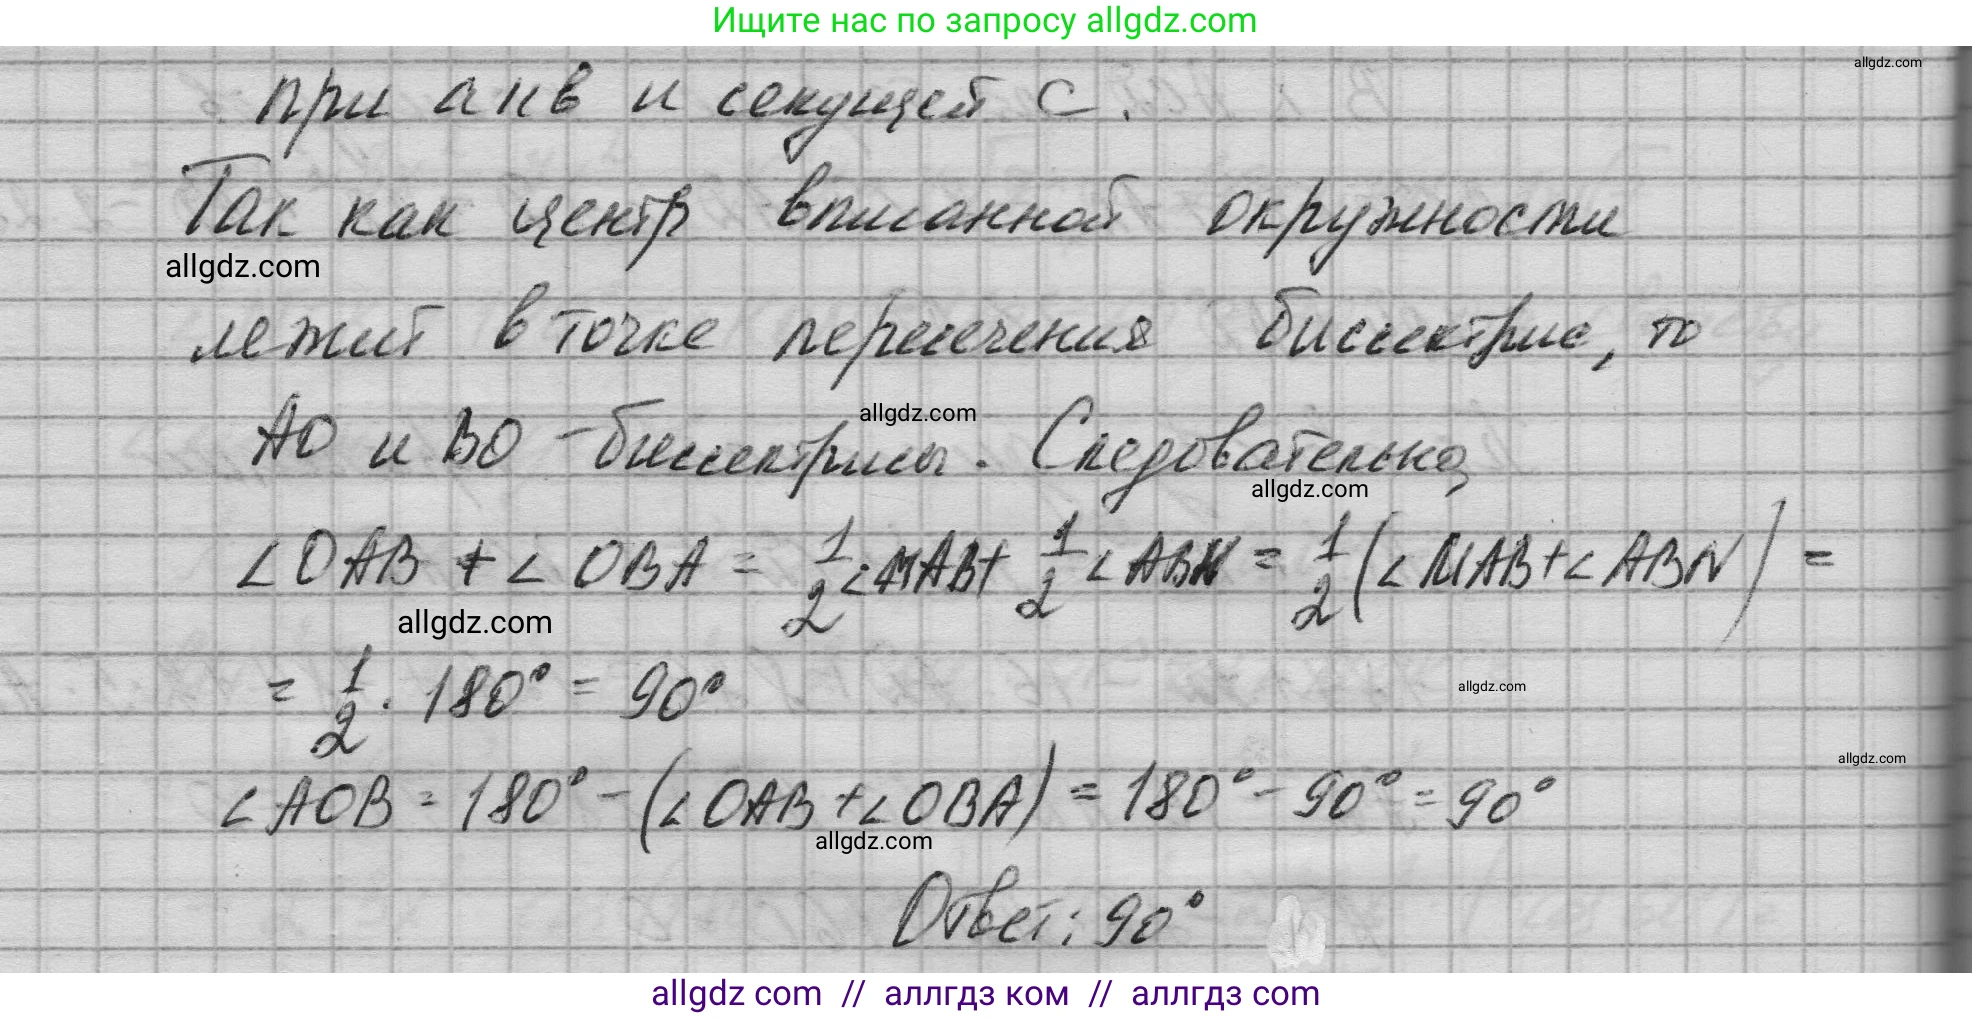 Ищите нас по запросу allgdz.com
allgdz.com
при a и в и секущей с.
Так как центр вписанной окружности
allgdz.com
лежит в точке пересечения биссектрис, то
allgdz.com
АО и ВО – биссектрисы. Следовательно,
allgdz.com
∠OAB + ∠OBA = 1/2 ∠MAB + 1/2 ∠ABN = 1/2 (∠MAB + ∠ABN) =
allgdz.com
= 1/2 · 180° = 90°
allgdz.com
allgdz.com
∠AOB = 180° – (∠OAB + ∠OBA) = 180° – 90° = 90°
allgdz.com
Ответ: 90°
allgdz com // аллгдз ком // аллгдз com